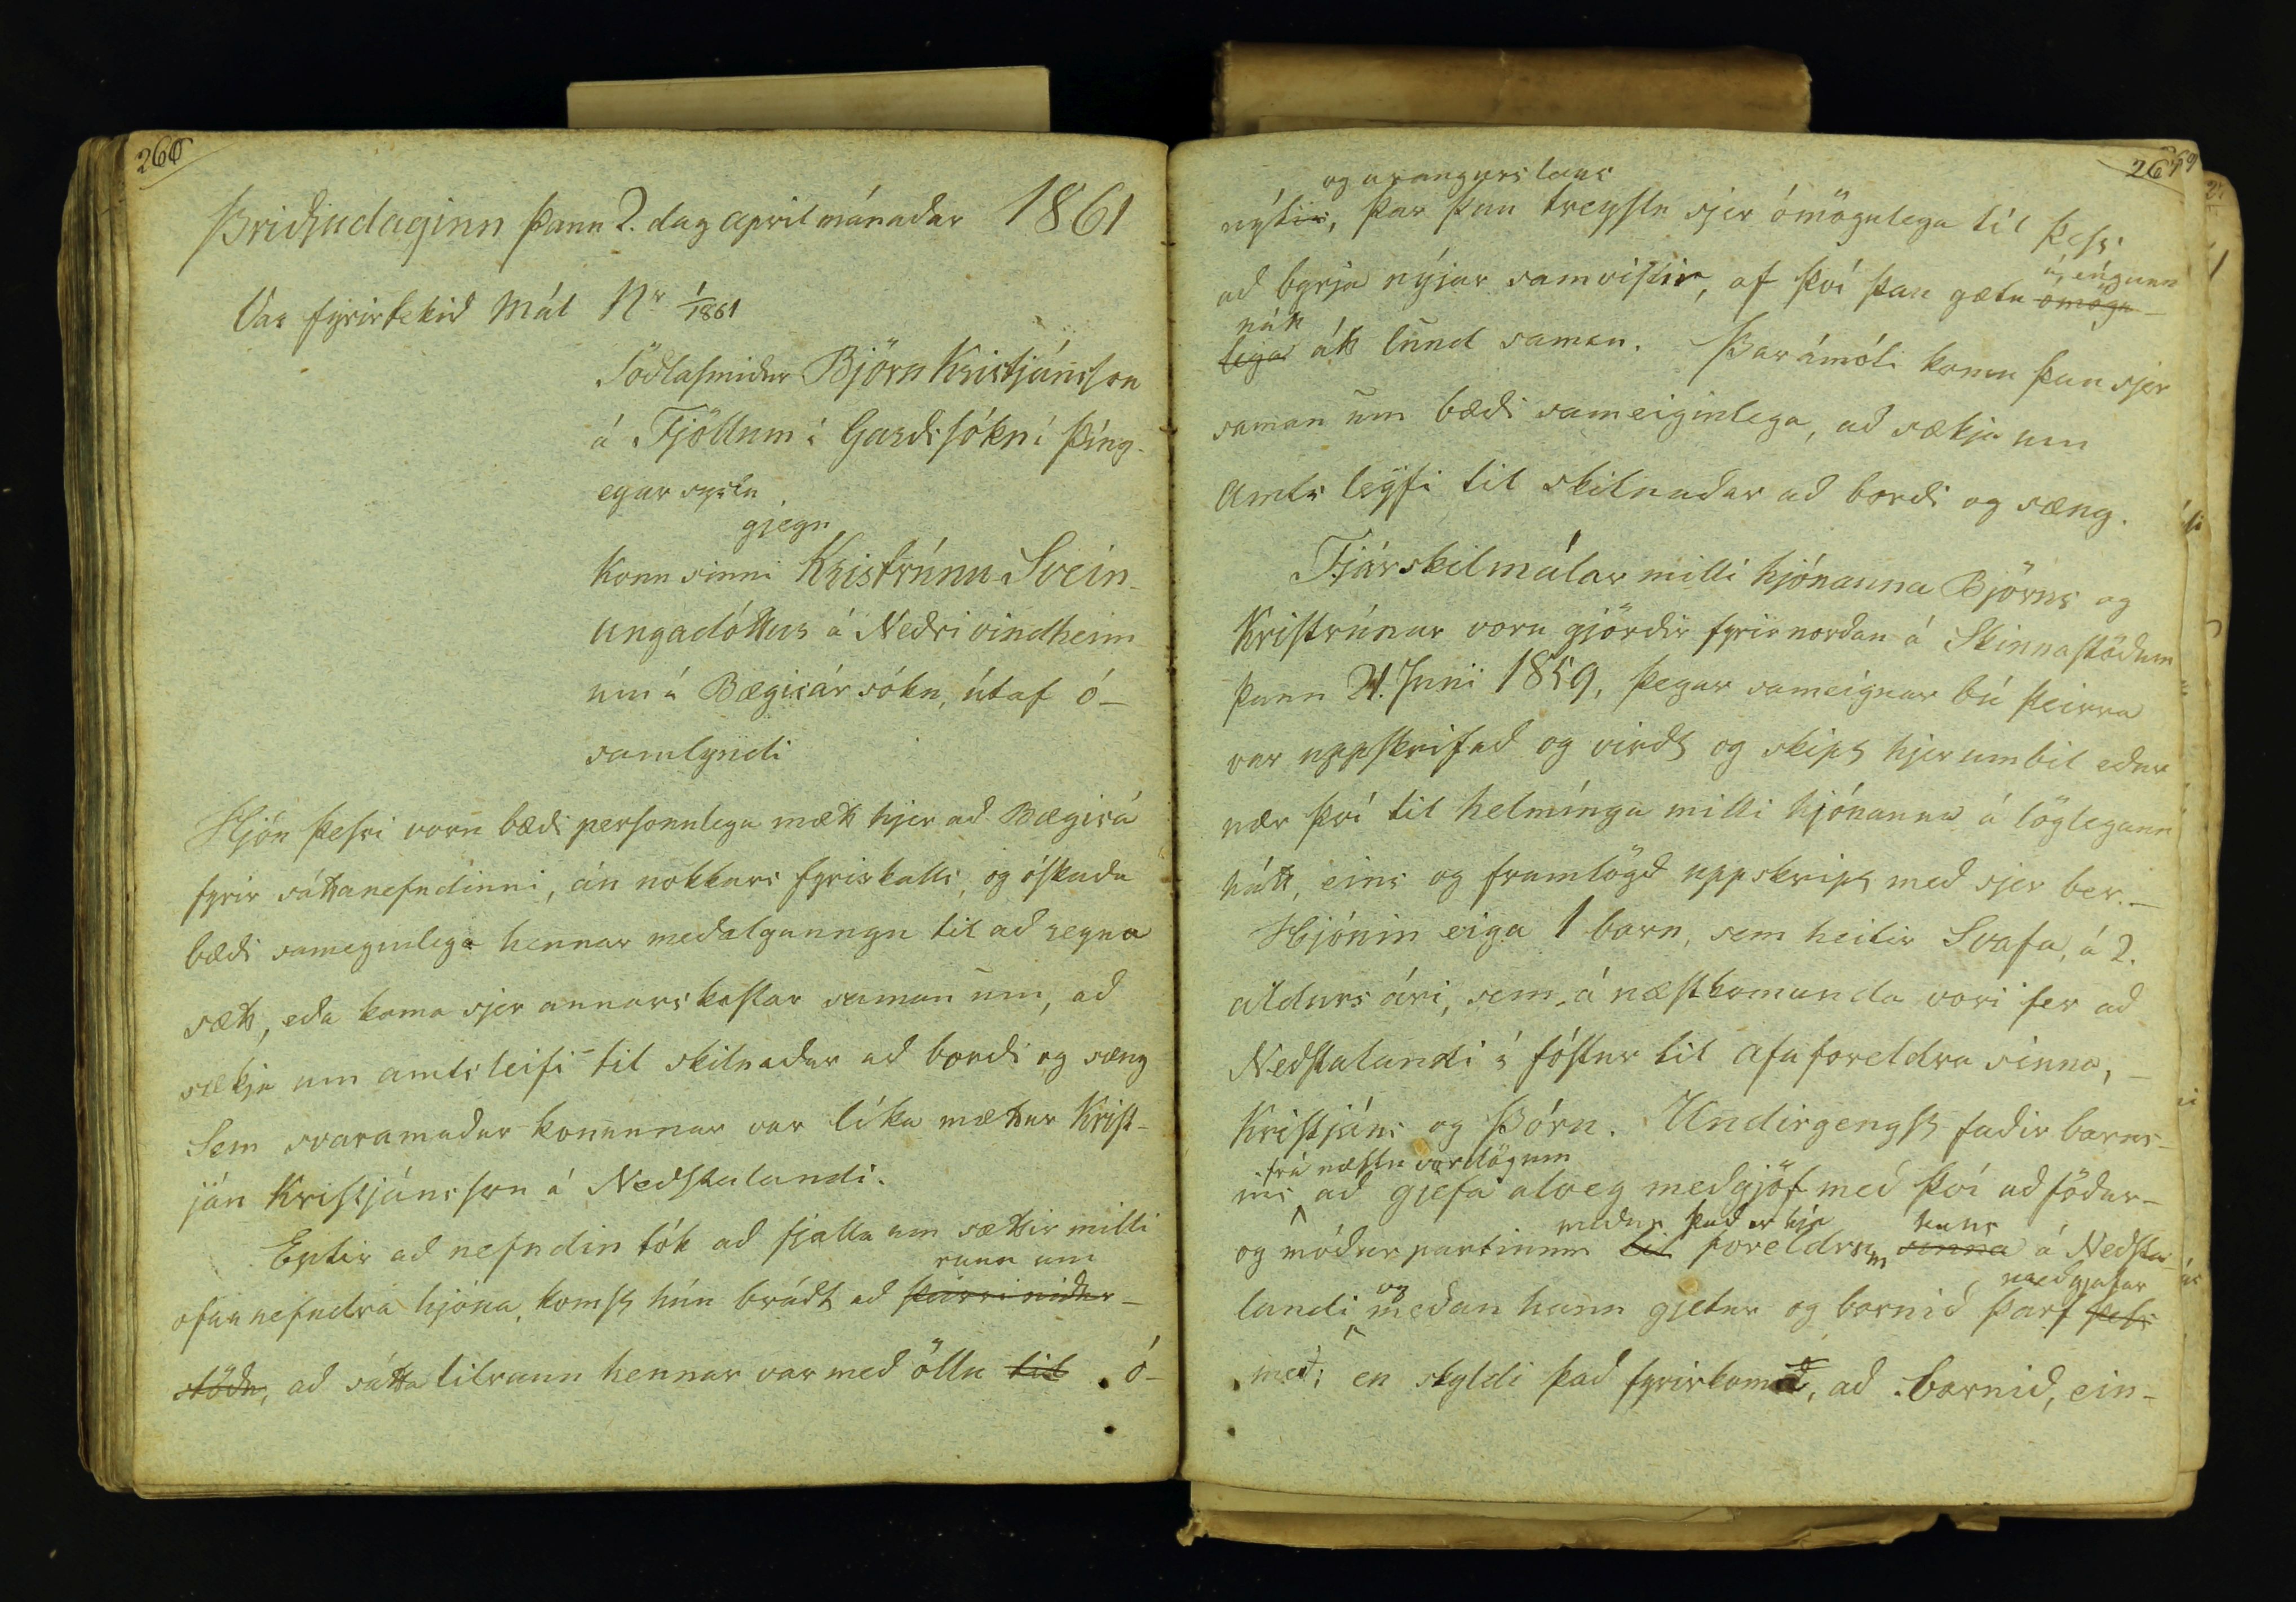 260
Þriðjudaginn þann 2. dag april mánaðar 1861
Var fyrirtekið Mál Nr 1/1861
Söðlasmiður Björn Kristjánsson
á Fjöllum í Garðssókn í Þíng-
eyar syslu
gjegn
Konu sinni Kristrúnu Svein-
ungadóttur á Neðri vindheim
um í Bægisár sókn, útaf ó-
samlyndi
Hjón þessi voru bæði personulega mætt hjer að Bægisá
fyrir sáttanefndinni, án nokkurs fyrirkalls, og óskuðu
bæði sameginlega hennar meðalgaungu til að reyna
sætt, eða koma sjer annars kostar saman um, að
sækja um amtsleifi til skilnaðar að borði og sæng
Sem svaramaður konunnar var líka mættur Krist-
ján Kristjánsson á Neðstalandi.
Eptir að nefndin tók að fjalla um sættir milli
raun um
ofannefndra hjóna, komst hún brádt að þeirri niður-
stöðu, að sátta tilraun hennar var með öllu til ó-
og árangurslaus
nýtir, þar þau treystu sjer ómögulega til þess
að byrja nýjar samvistir, af því þau gætu ómögu-
á, eingunn
hátt
lega átt lund saman. Þarámóti komu þau sjer
saman um bæði sameiginlega, að sækja um
Amts leyfi til skilnaðar að borði og sæng.
Fjárskilmálar milli hjónanna Björns og
Kristrúnar voru gjörðir fyrir norðan á Skinnastöðum
þann 21. Juni 1859, þegar sameignar bú þeirra
var uppskrifað og virdt og skipt hjerumbil eður
nær því til helmínga milli hjónanna á löglegann
hátt, eins og framlögð uppskript með sjer ber.-
Hjónin eiga 1 barn, sem heitir Svafa, á 2.
aldurs ári, sem á næstkomanda vori fer að
Neðstalandi í fóstur til afaforeldra sinna, -
Kristjáns og Þóru. Undirgengst faðir barns-
frá næstu vordögum
ins að gjefa alveg meðgjöf með því að föður-
meðan það er hjá hans
og móðurpartinum til foreldrum sinna á Neðsta-
og meðgjafar
landi, meðan hann gjetur og barnið þarf þess
með; en skyldi það fyrirkoma, að barnið, ein-